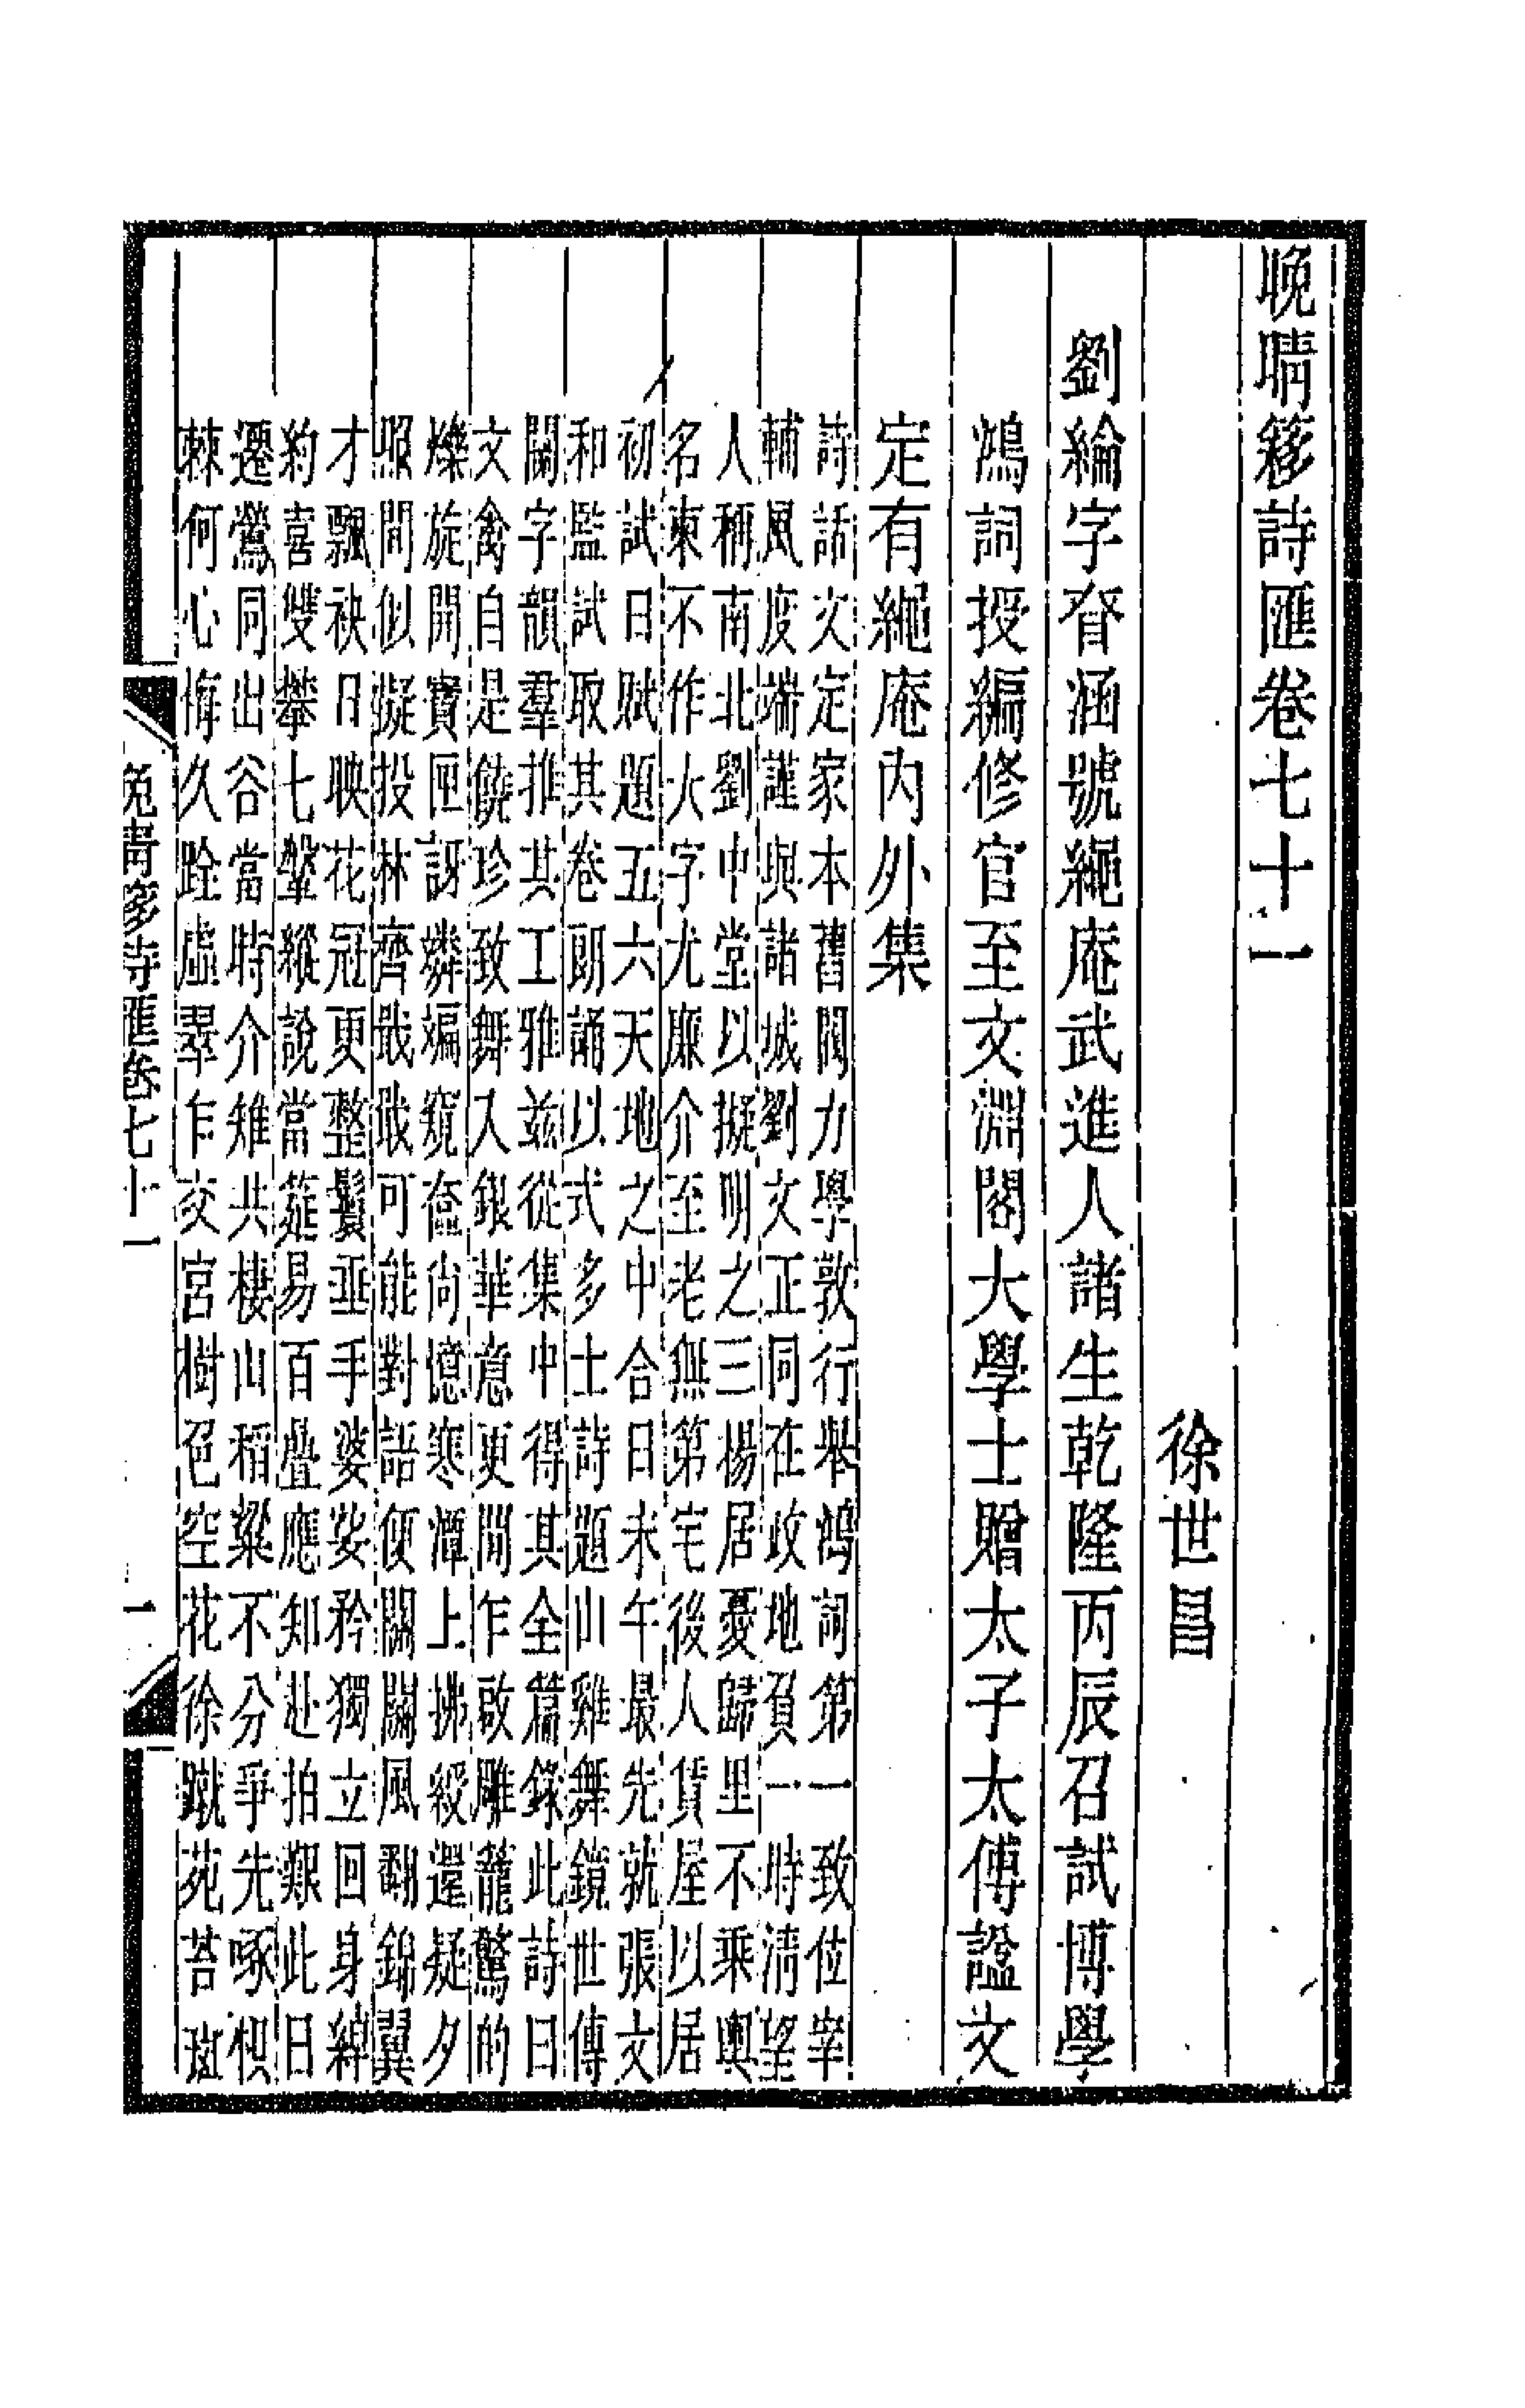 晚晴簃詩匯卷七十一
徐世昌
劉綸字眘涵號繩庵武進人諸生乾隆丙辰召試博學
鴻詞授編修官至文淵閣大學士贈太子太傅諡文
定有繩庵內外集
詩話文定家本舊閥力學敦行舉鴻詞第一致位宰
輔風度端謹與諸城劉文正同在政地負一時清望
人稱南北劉中堂以擬明之三楊居憂歸里不乘輿
名柬不作大字尤廉介至老無第宅後人貨屋以居
初試日賦題五六天地之中合日未午最先就張文
和監試取其卷朗誦以式多士詩題山雞舞鏡世傳
闌字韻羣推其工雅兹從集中得其全篇錄此詩曰
文禽自是饒珍致舞入銀華意更閒乍啟雕籠驚的
爍旋開寶匣訝㻞㻞窺奩尚憶寒潭上拂綬還疑夕
照閒似擬投林齊戢戢可能對語便關關風翻錦翼
才飄袂日映花冠更整鬟垂手婆娑矜獨立回身綽
約喜雙攀七槃縱說當筵易百疊應知赴拍艱此日
遷鶯同出谷當時介雉共棲山稻粱不分爭先啄枳
棘何心悔久跧虛翠乍交宮樹色空花徐蹴苑苔斑
晚晴簃詩匯卷七十一
一